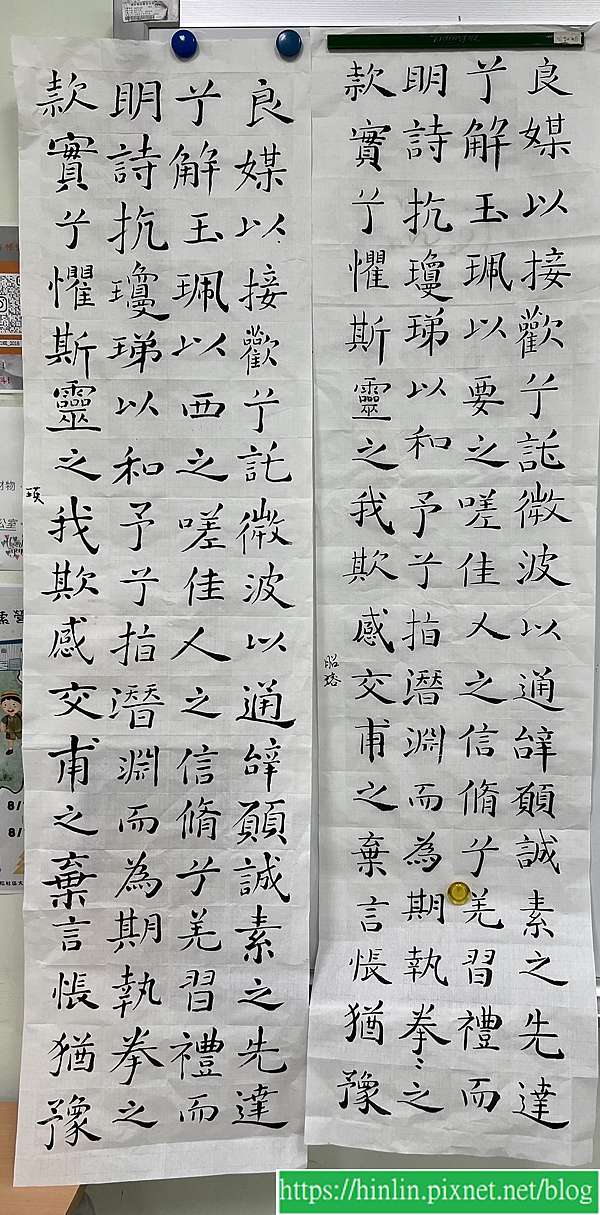 良媒以接歡兮託微波以通辭願誠素之先達
兮解玉珮以要之嗟佳人之信脩兮羌習禮而
明詩抗瓊珶以和予兮指潛淵而為期執拳〻之
款實兮懼斯靈之我欺感交甫之棄言悵猶豫
良媒以接歡兮託微波以通辭願誠素之先達
兮解玉珮以西之嗟佳人之信脩兮羌習禮而
明詩抗瓊珶以和予兮指潛淵而為期執拳之
款實兮懼斯靈之我欺感交甫之棄言悵猶豫
瑛
https://hinlin.pixnet.net/blog